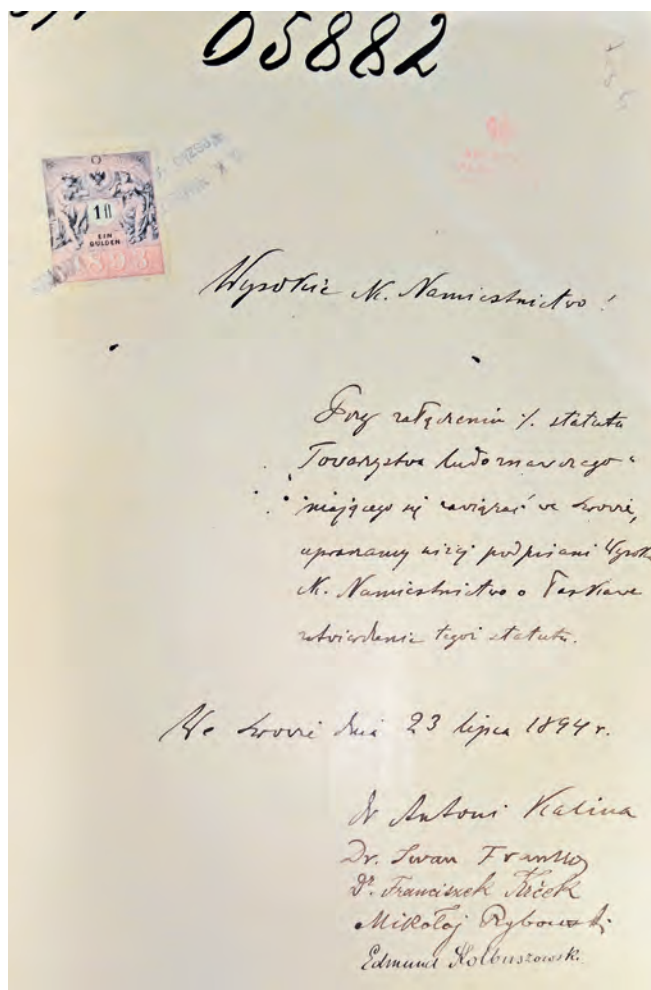 05882
1 fl
EIN
GULDEN
1893
Wysokie c.k. Namiestnictwo!
Przy załączeniu %. statutu
„Towarzystwa ludoznawczego“
mającego się zawiązać we Lwowie,
upraszamy niżej podpisani Wysokie
c.k. Namiestnictwo o łaskawe
zatwierdzenie tegoż statutu.
We Lwowie dnia 23 lipca 1894 r.
dr Antoni Kalina
Dr. Iwan Franko
Dr. Franciszek Krček
Mikołaj Rybowski
Edmund Kolbuszowski